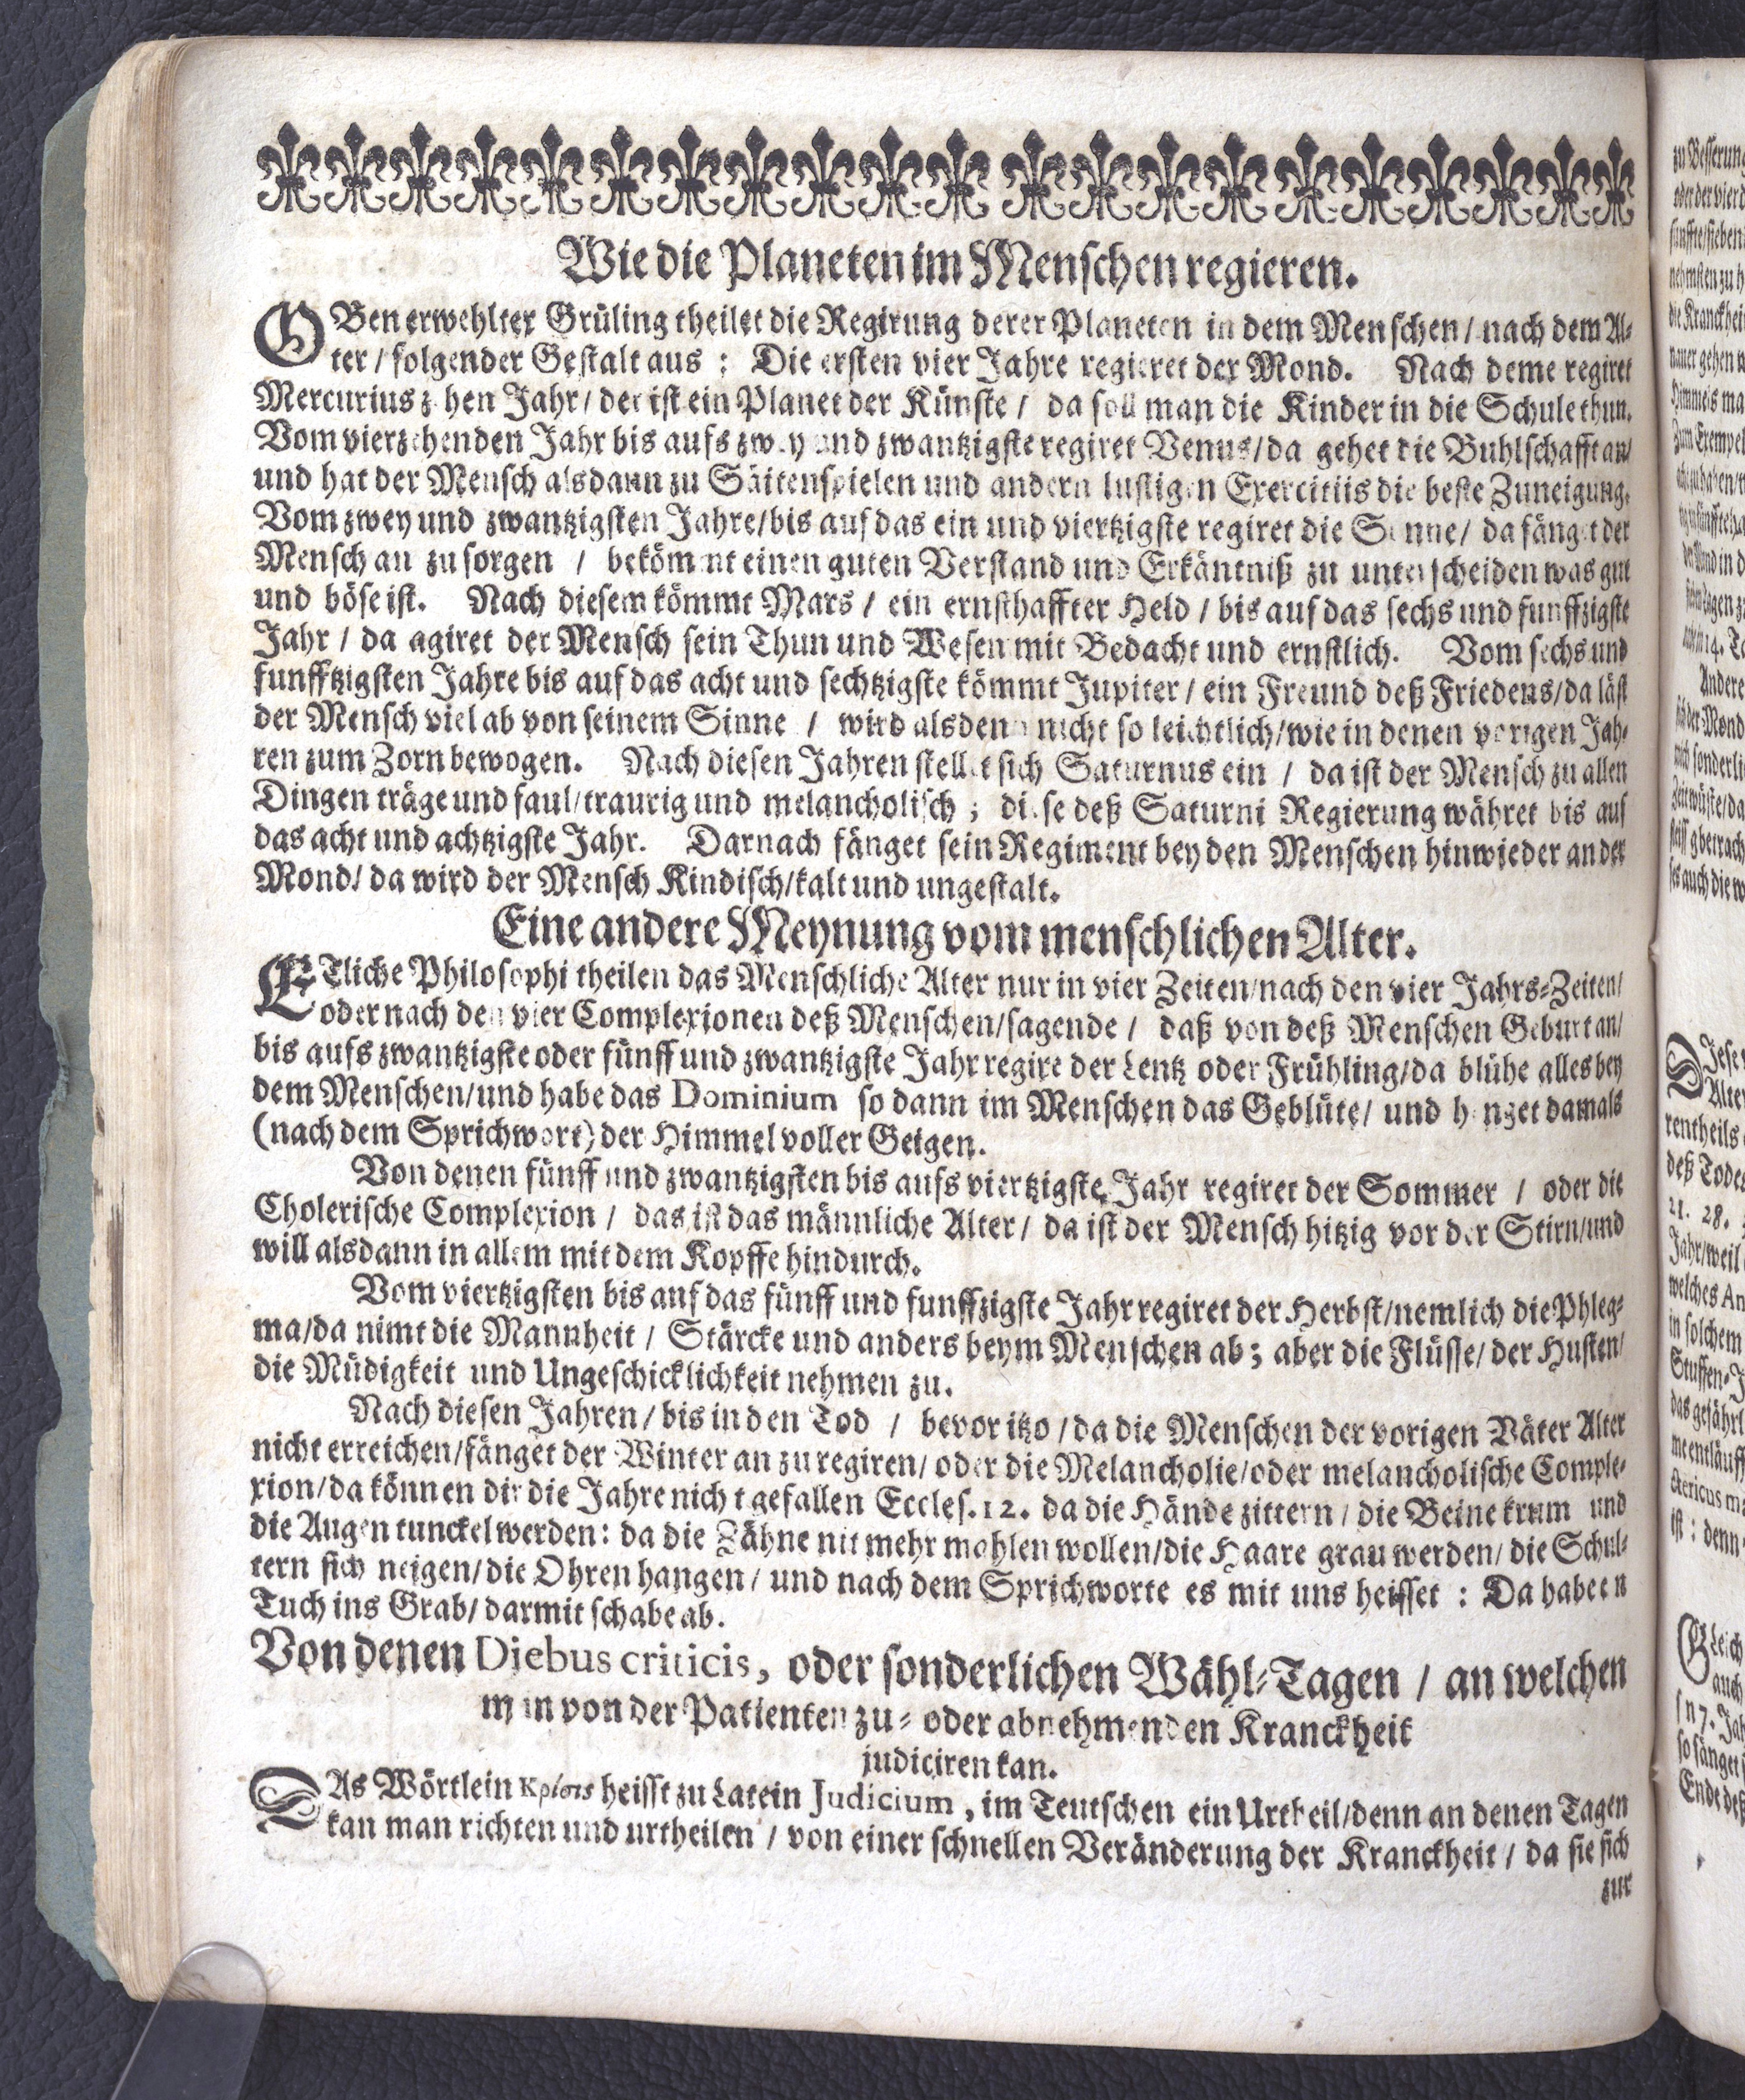 Wie die Planeten im Menschen regieren.
OBen erwehlter Grüling theilet die Regirung derer Planeten in dem Menschen / nach dem Al-
ter / folgender Gestalt aus : Die ersten vier Jahre regieret der Mond. Nach deme regiret
Mercurius zehen Jahr / der ist ein Planet der Künste / da soll man die Kinder in die Schule thun.
Vom vierzehenden Jahr bis aufs zwey und zwantzigste regiret Venus / da gehet die Buhlschafft an /
und hat der Mensch alsdann zu Säitenspielen und andern lustigen Exercitiis die beste Zuneigung.
Vom zwey und zwantzigsten Jahre / bis auf das ein und viertzigste regiret die Sonne / da fänget der
Mensch an zu sorgen / bekömmt einen guten Verstand und Erkäntniß zu unterscheiden was gut
und böse ist. Nach diesem kömmt Mars / ein ernsthaffter Held / bis auf das sechs und funffzigste
Jahr / da agiret der Mensch sein Thun und Wesen mit Bedacht und ernstlich. Vom sechs und
funfftzigsten Jahre bis auf das acht und sechtzigste kömmt Jupiter / ein Freund deß Friedens / da läst
der Mensch viel ab von seinem Sinne / wird alsdenn nicht so leichtlich / wie in denen vorigen Jah-
ren zum Zorn bewogen. Nach diesen Jahren stellet sich Saturnus ein / da ist der Mensch zu allen
Dingen träge und faul / traurig und melancholisch ; diese deß Saturni Regierung währet bis auf
das acht und achtzigste Jahr. Darnach fänget sein Regiment bey den Menschen hinwieder an der
Mond / da wird der Mensch Kindisch / kalt und ungestalt.
Eine andere Meynung vom menschlichen Alter.
ETliche Philosophi theilen das Menschliche Alter nur in vier Zeiten / nach den vier Jahrs-Zeiten /
oder nach den vier Complexionen deß Menschen / sagende / daß von deß Menschen Geburt an /
bis aufs zwantzigste oder fünff und zwantzigste Jahr regire der Lentz oder Frühling / da blühe alles bey
dem Menschen / und habe das Dominium so dann im Menschen das Geblüte / und hanget damals
(nach dem Sprichwort) der Himmel voller Geigen.
Von denen fünff und zwantzigsten bis aufs viertzigste Jahr regiret der Sommer / oder die
Cholerische Complexion / das ist das männliche Alter / da ist der Mensch hitzig vor der Stirn / und
will alsdann in allem mit dem Kopffe hindurch.
Vom viertzigsten bis auf das fünff und funffzigste Jahr regiret der Herbst / nemlich die Phleg-
ma / da nimt die Mannheit / Stärcke und anders beym Menschen ab ; aber die Flüsse / der Husten /
die Müdigkeit und Ungeschicklichkeit nehmen zu.
Nach diesen Jahren / bis in den Tod / bevor itzo / da die Menschen der vorigen Väter Alter
nicht erreichen / fänget der Winter an zu regiren / oder die Melancholie / oder melancholische Comple-
xion / da können dir die Jahre nicht gefallen Eccles. 12. da die Hände zittern / die Beine krum und
die Augen tunckel werden : da die Zähne nit mehr mahlen wollen / die Haare grau werden / die Schul-
tern sich neigen / die Ohren hangen / und nach dem Sprichworte es mit uns heisset : Da habe en
Tuch ins Grab / darmit schabe ab.
Von denen Diebus criticis, oder sonderlichen Wähl-Tagen / an welchen
man von der Patienten zu- oder abnehmenden Kranckheit
judiciren kan.
DAs Wörtlein Κρίσις heisst zu Latein Judicium, im Teutschen ein Urtheil / denn an denen Tagen
kan man richten und urtheilen / von einer schnellen Veränderung der Kranckheit / da sie sich
zur